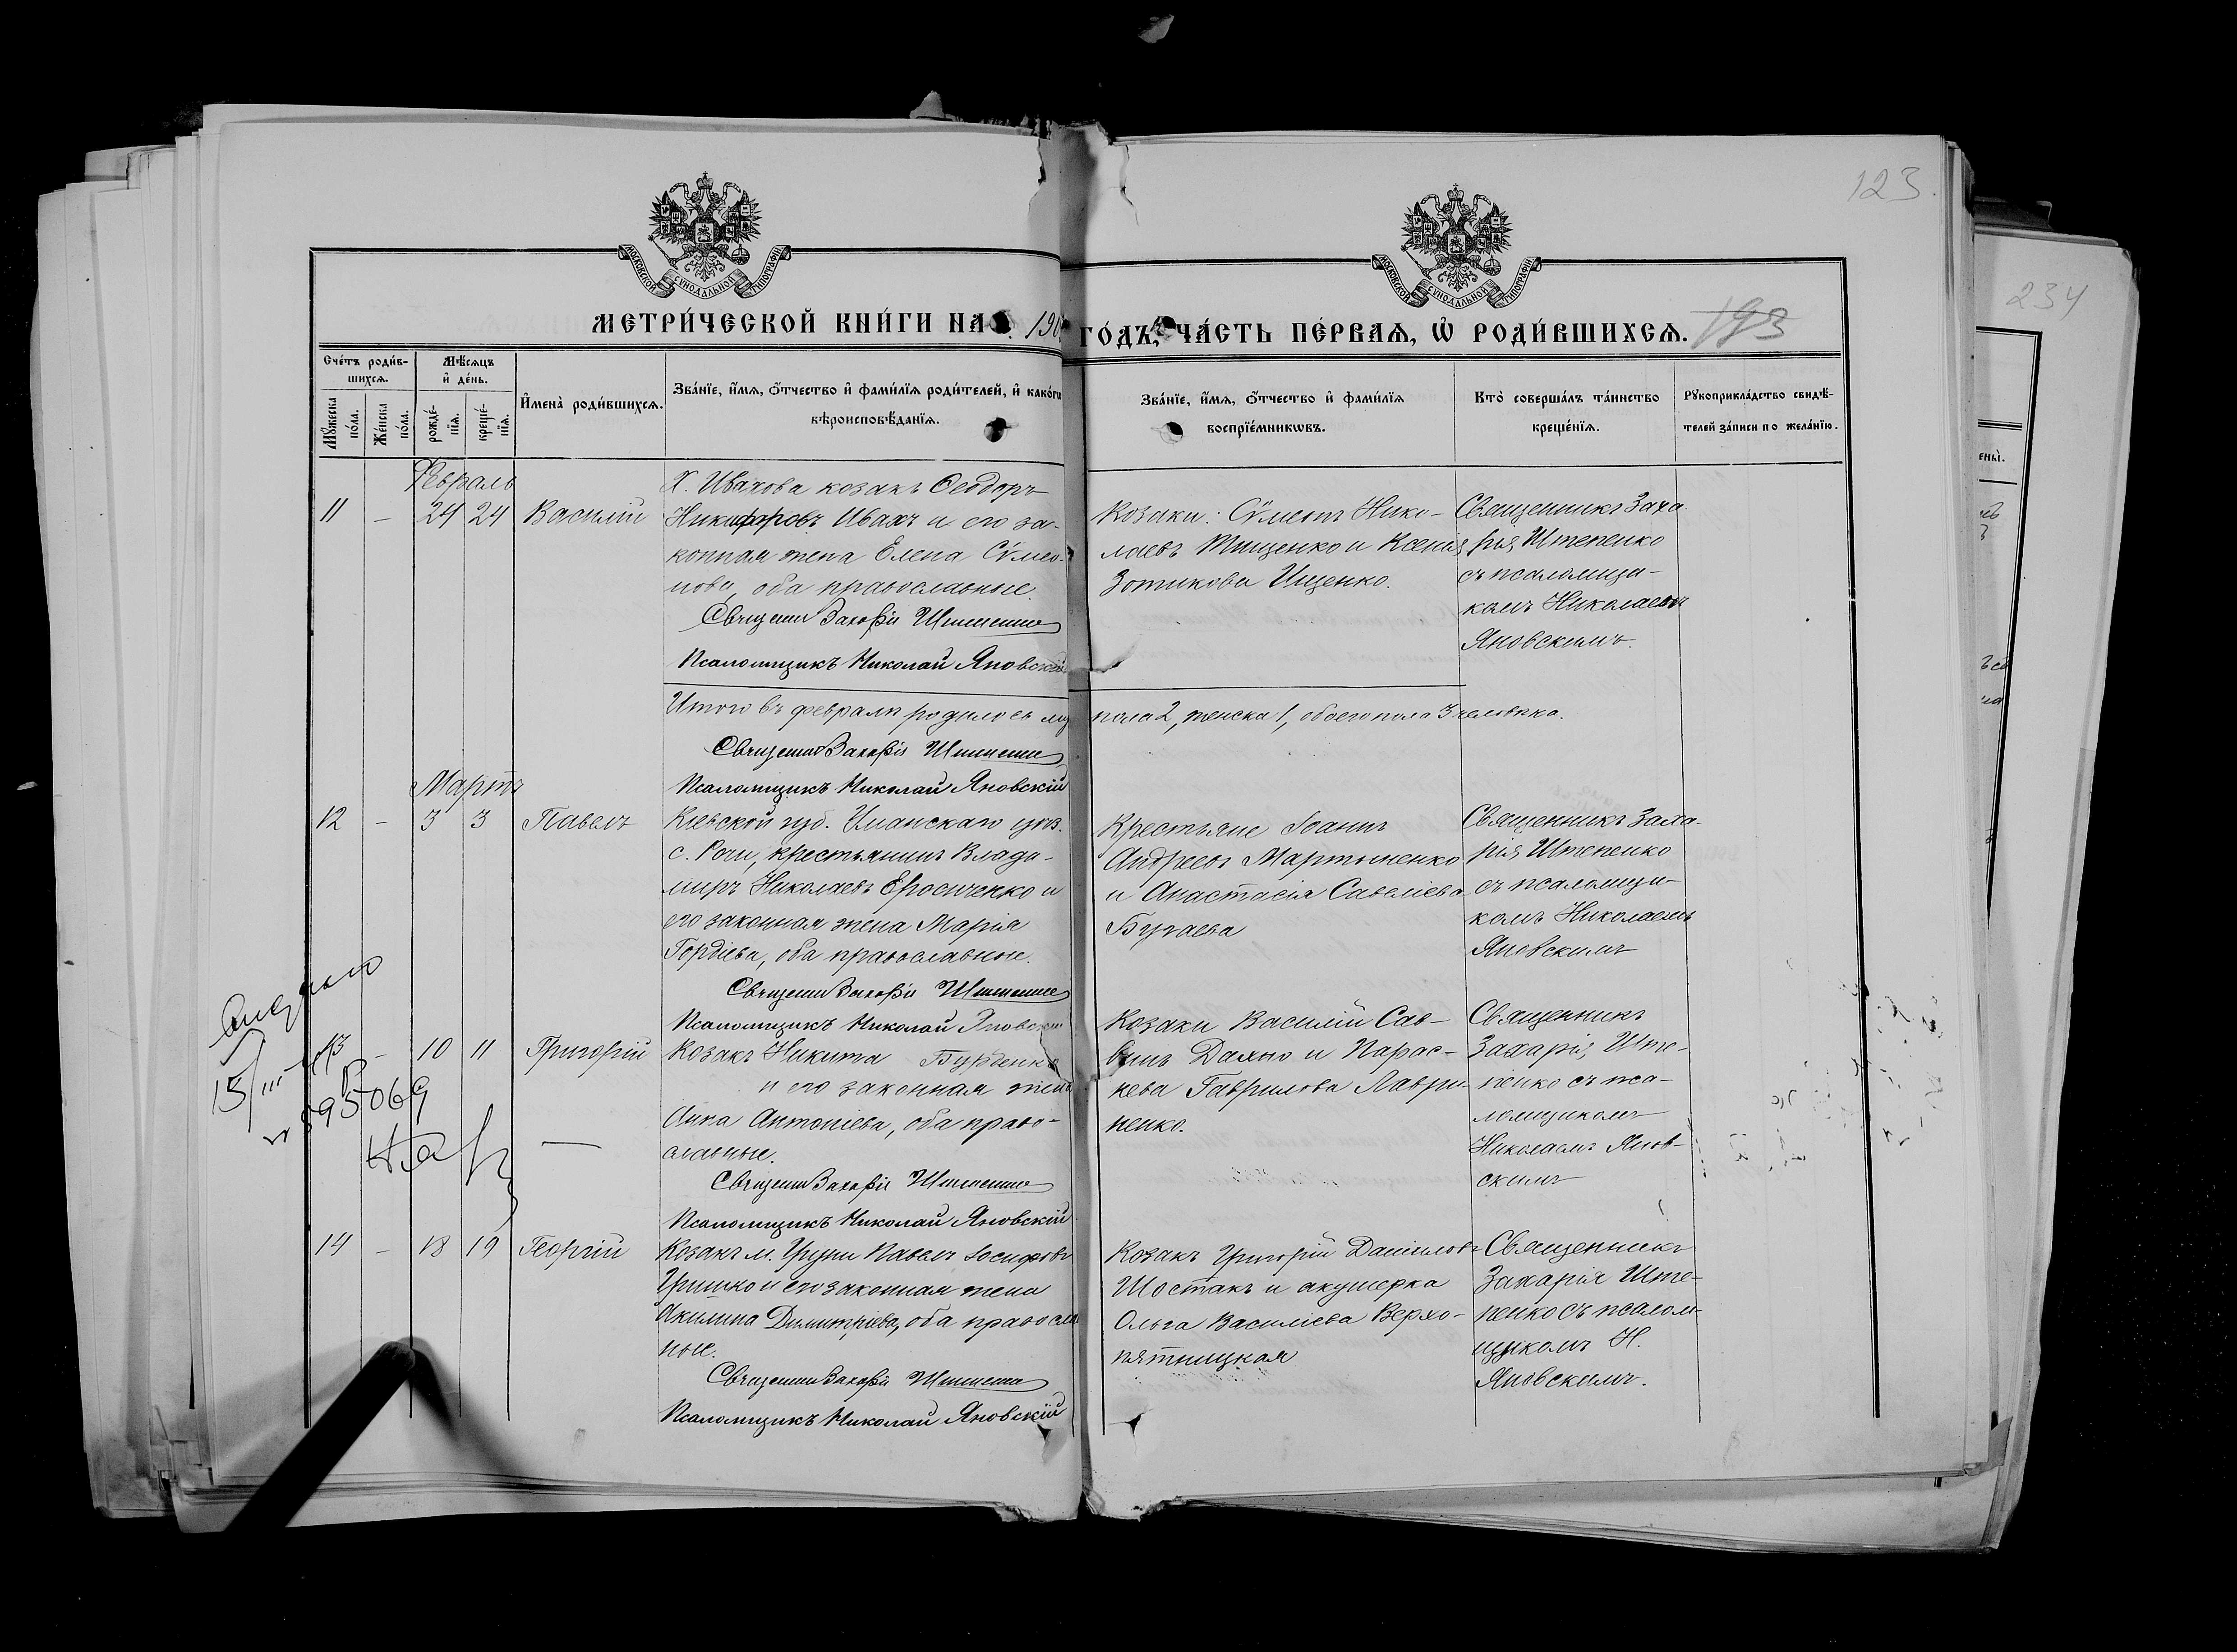 123
234
МОСКОВСКОЙ СѴНОДАЛЬНОЙ ТИПОГРАФІИ
МОСКОВСКОЙ СѴНОДАЛЬНОЙ ТИПОГРАФІИ
МЕТРИ́ЧЕСКОЙ КНИ́ГИ НА 190
ГО́ДЪ, ЧА́СТЬ ПЕ́РВАѦ, Ѡ РОДИ́ВШИХСѦ. 193
Сче́тъ роди́в-
шихсѧ.
Мѣ́сѧцъ
и́ де́нь.
Мꙋ́жеска по́ла.
Же́нска по́ла.
рожде́-
нїѧ.
креще́-
нїѧ.
И҆мена̀ роди́вшихсѧ.
Зва́нїе, и҆́мѧ, ѻ҆́тчество и҆ фами́лїѧ роди́телей, и҆ како́гѡ
вѣроисповѣ́данїѧ.
Зва́нїе, и҆́мѧ, ѻ҆́тчество и҆ фами́лїѧ
воспрїе́мникѡвъ.
Кто̀ соверша́лъ та́инство
креще́нїѧ.
Рꙋкоприкла́дство свидѣ́-
телей за́писи по жела́нїю.
Февраль
11 – 24 24 Василій
Х. Ивахова козакъ Ѳеодоръ
Никифоровъ Ивахъ и его за-
конная жена Елена Сѵмео-
нова, оба православные.
Священ Захарія Штепенко
Псаломщикъ Николай Яновскій
Козаки: Сѵмеонъ Нико-
лаевъ Тищенко и Ксенія
Зотикова Ищенко.
Священникъ Заха
рія Штепенко
съ псаломщи-
комъ Николаемъ
Яновскимъ.
Итого въ февралѣ родилось муж
пола 2, женска 1, обоего пола 3 человѣка.
Священ Захарія Штепенко
Псаломщикъ Николай Яновскій
Мартъ
12 – 3 3 Павелъ
Кіевской губ. Уманскаго уѣз.
с. Рочи, крестьянинъ Влади-
миръ Николаевъ Еросиченко и
его законная жена Марія
Гордіева, оба православные.
Священ Захарія Штепенко
Псаломщикъ Николай Яновскій
Крестьяне Іоаннъ
Андреевъ Мартыненко
и Анастасія Савеліева
Бугаева
Священникъ Заха-
рія Штепенко
съ псаломщи-
комъ Николаемъ
Яновскимъ
15/III
№ 595069
13 – 10 11 Григорій
Козакъ Никита Бурденко
и его законная жена
Анна Антоніева, оба право-
славные.
Священ Захарія Штепенко
Псаломщикъ Николай Яновскій
Козаки Василій Сав-
винъ Дахно и Парас-
кева Гаврилова Лаври-
ненко.
Священникъ
Захарія Ште-
пенко съ пса-
ломщикомъ
Николаемъ Янов-
скимъ
14 – 18 19 Георгій
Козакъ м. Груни Павелъ Іосифовъ
Гришко и его законная жена
Акилина Димитріева, оба правосла
ные.
Священ Захарія Штепенко
Псаломщикъ Николай Яновскій
Козакъ Григорій Даніиловъ
Шостакъ и акушерка
Ольга Василіева Верхо-
пятницкая
Священникъ
Захарія Ште-
пенко съ псалом-
щикомъ Н.
Яновскимъ.